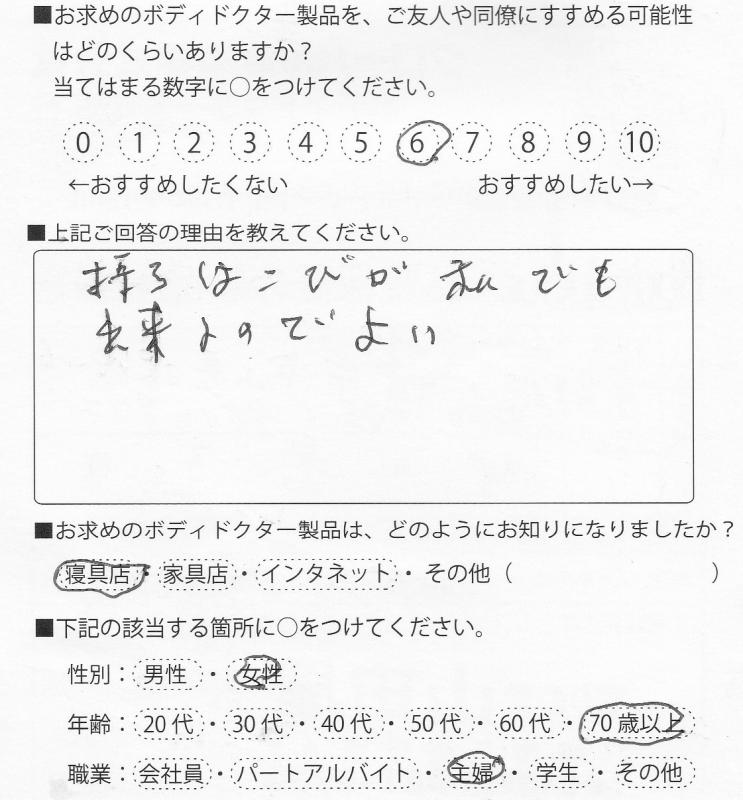 ■お求めのボディドクター製品を、ご友人や同僚にすすめる可能性
はどのくらいありますか？
当てはまる数字に○をつけてください。
0 1 2 3 4 5 6 7 8 9 10
←おすすめしたくない おすすめしたい→
■上記ご回答の理由を教えてください。
持ちはこびが私でも
出来るのでよい
■お求めのボディドクター製品は、どのようにお知りになりましたか？
寝具店・家具店・インタネット・その他（ ）
■下記の該当する箇所に○をつけてください。
性別：男性・女性
年齢：20代・30代・40代・50代・60代・70歳以上
職業：会社員・パートアルバイト・主婦・学生・その他